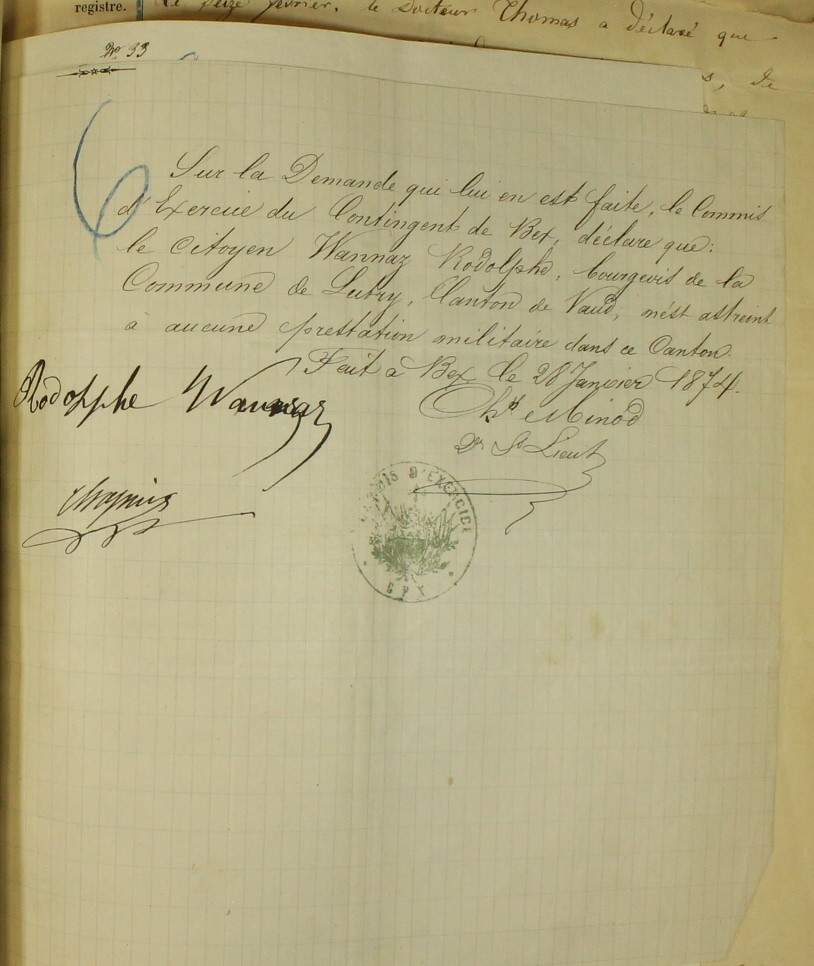 registre.
Le seize février, le Docteur Thomas a déclaré que
No 33
s, De
Sur la Demande qui lui en est faite, le Commis
d'Exercice du Contingent de Bex, déclare que:
le Citoyen Wannaz Rodolphe, bourgeois de la
Commune de Lutry, Canton de Vaud, n'est astreint
à aucune prestation militaire dans ce Canton.
Fait à Bex le 28 Janvier 1874.
Rodolphe Wannaz
Ch. Minod
Lieut
Chapuis
COMMIS D'EXERCICE
BEX